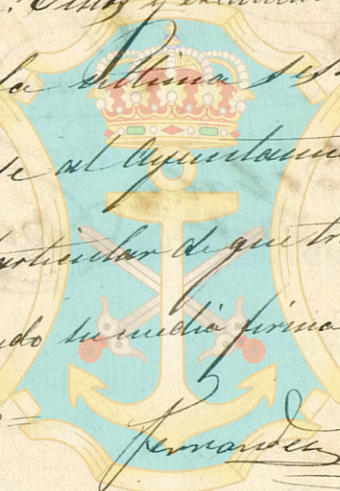 la última ses
de al Ayuntamie
articular de que tr
do su media firma
Fernandez